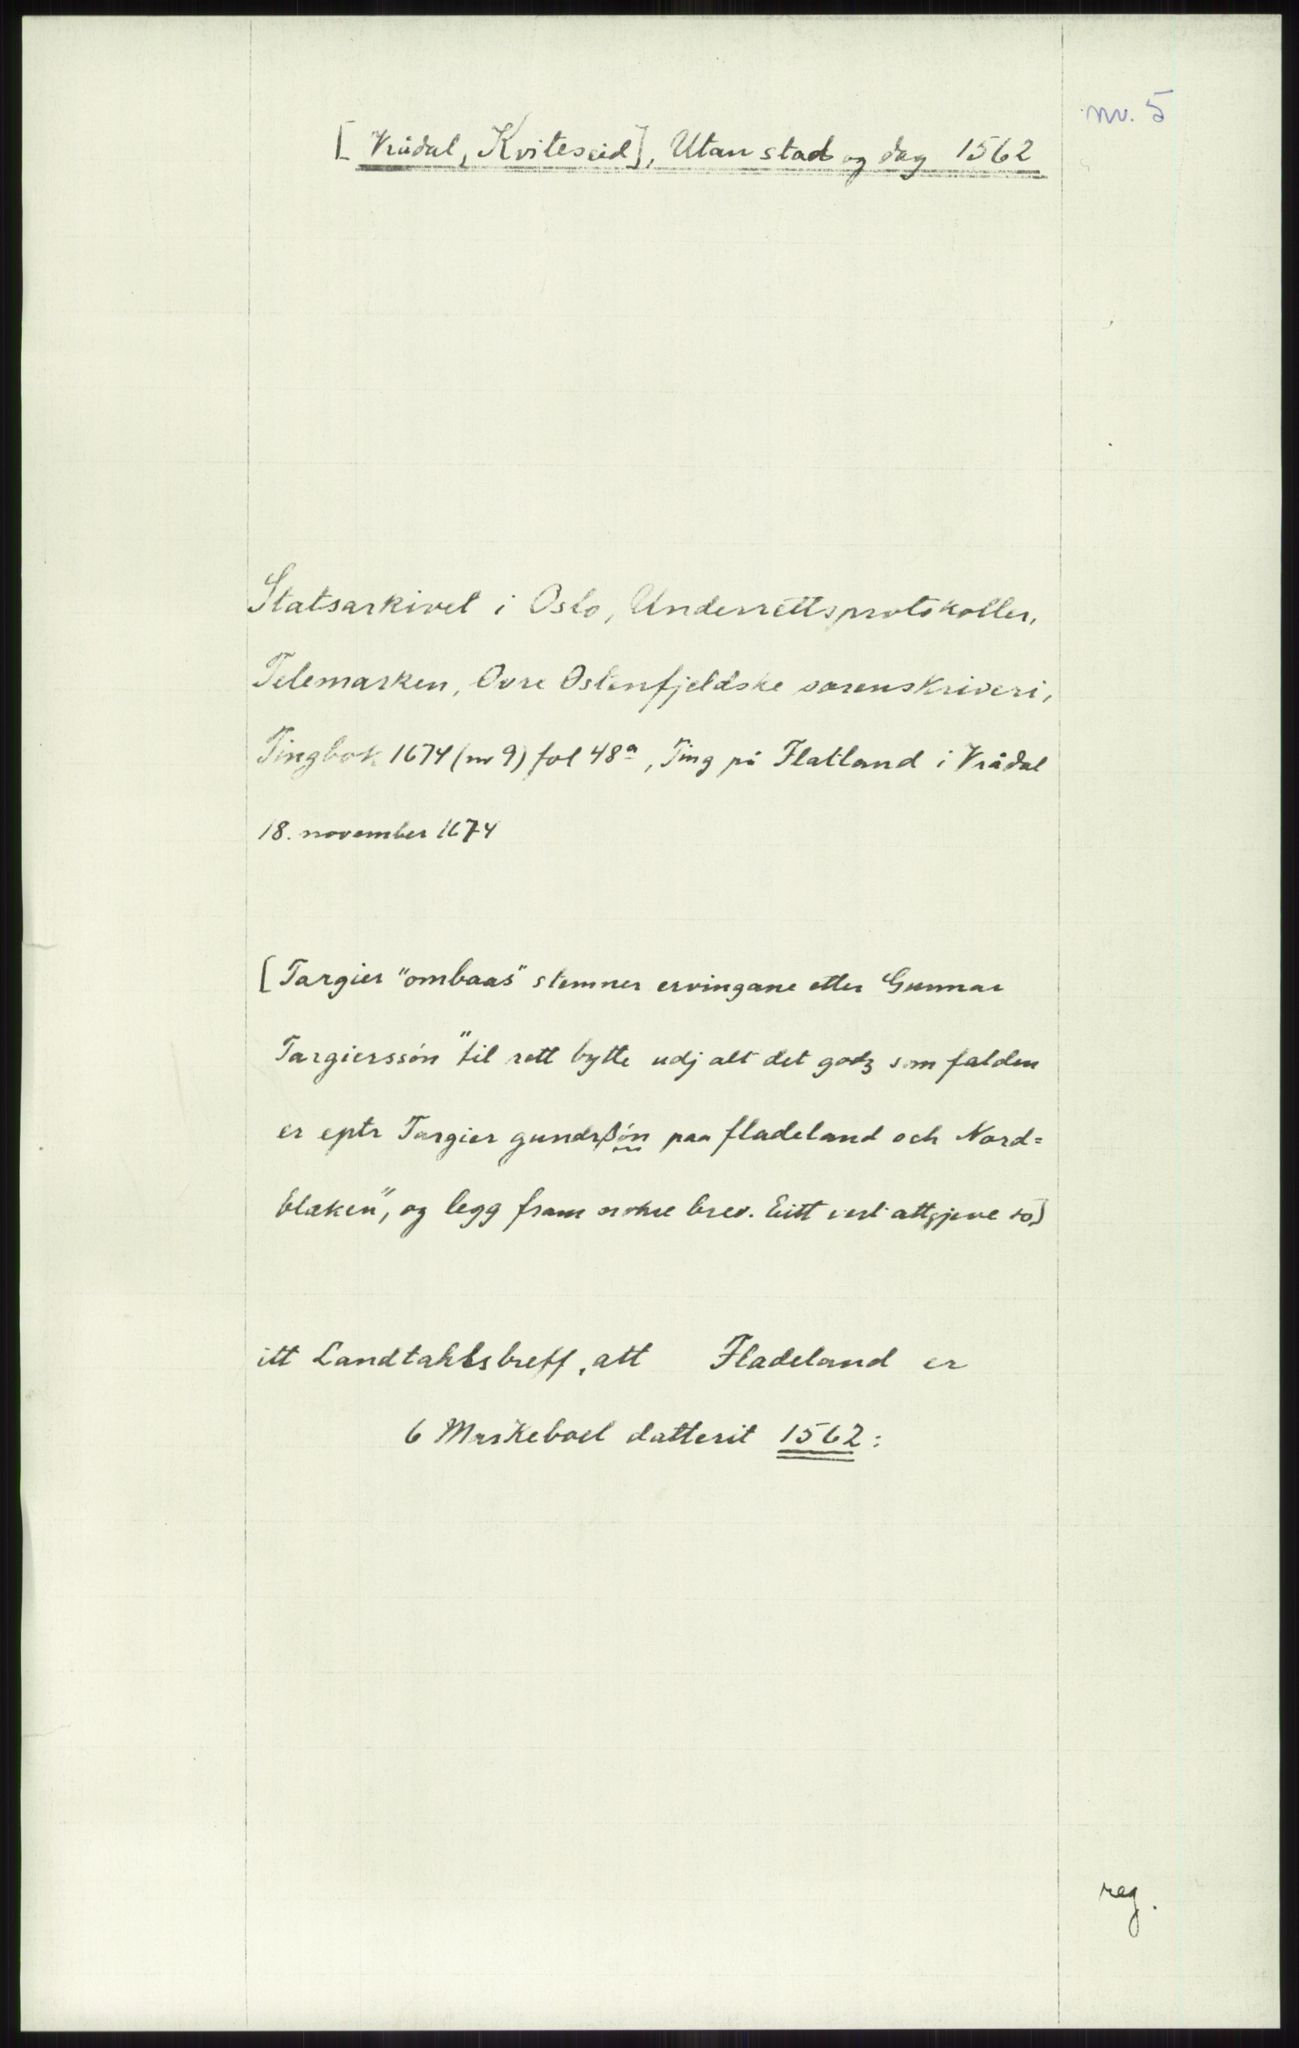 nr. 5
[Vrådal, Kviteseid], Utan stad og dag 1562
Statsarkivet i Oslo, Underrettsprotokoller,
Telemarken, Øvre Østenfjeldske sorenskriveri,
Tingbok 1674 (nr 9) fol 48a, Ting på Flatland i Vrådal
18. november 1674
[Targier "ombaas" stemner ervingane etter Gunnar
Targierssön "til rett bytte udj alt det godz som falden
er eptr Targier gundrßön paa fladeland och Nord=
blaken", og legg fram nokre brev. Eitt vert attgjeve so]
itt Landtahlsbreff, att Fladeland er
6 Markeboel datterit 1562:
reg.